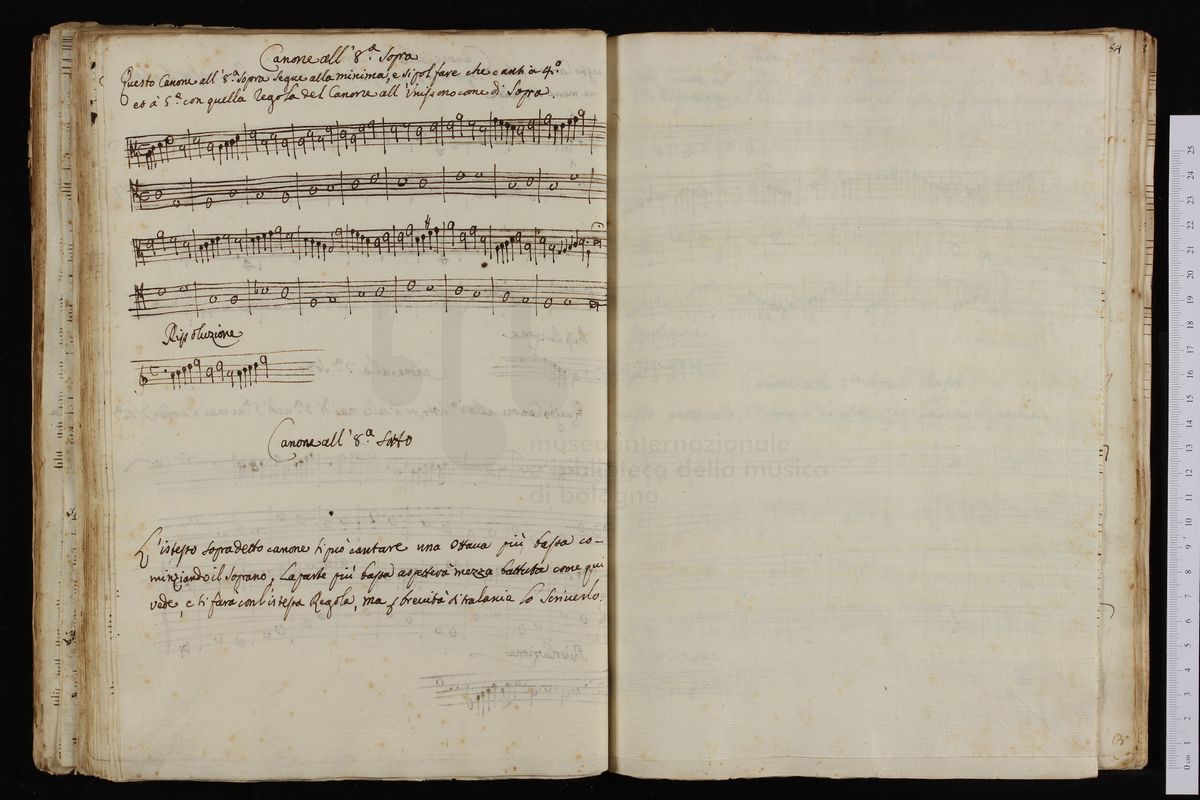 Canone all' 8.ª Sopra
Questo Canone all' 8.ª Sopra segue alla minima, e si pol fare che canti à 4.º
et à 5.ª con quella regola del Canone all' Unissono come di Sopra.
Rissoluzione
Canone all' 8.ª Sotto
L'istesso sopradetto canone si può cantare una Ottava più bassa co-
minziando il Soprano, La parte più bassa aspetterà mezza battuta come qui
vede, e si farà con l'istessa Regola, ma brevità si lo Scriverlo.
54
museo internazionale
e biblioteca della musica
di bologna
0 cm 1 2 3 4 5 6 7 8 9 10 11 12 13 14 15 16 17 18 19 20 21 22 23 24 25